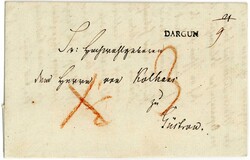 DARGUN
9
Sr: Hochwohlgeboren
dem Herrn von
zu
Güstrow.